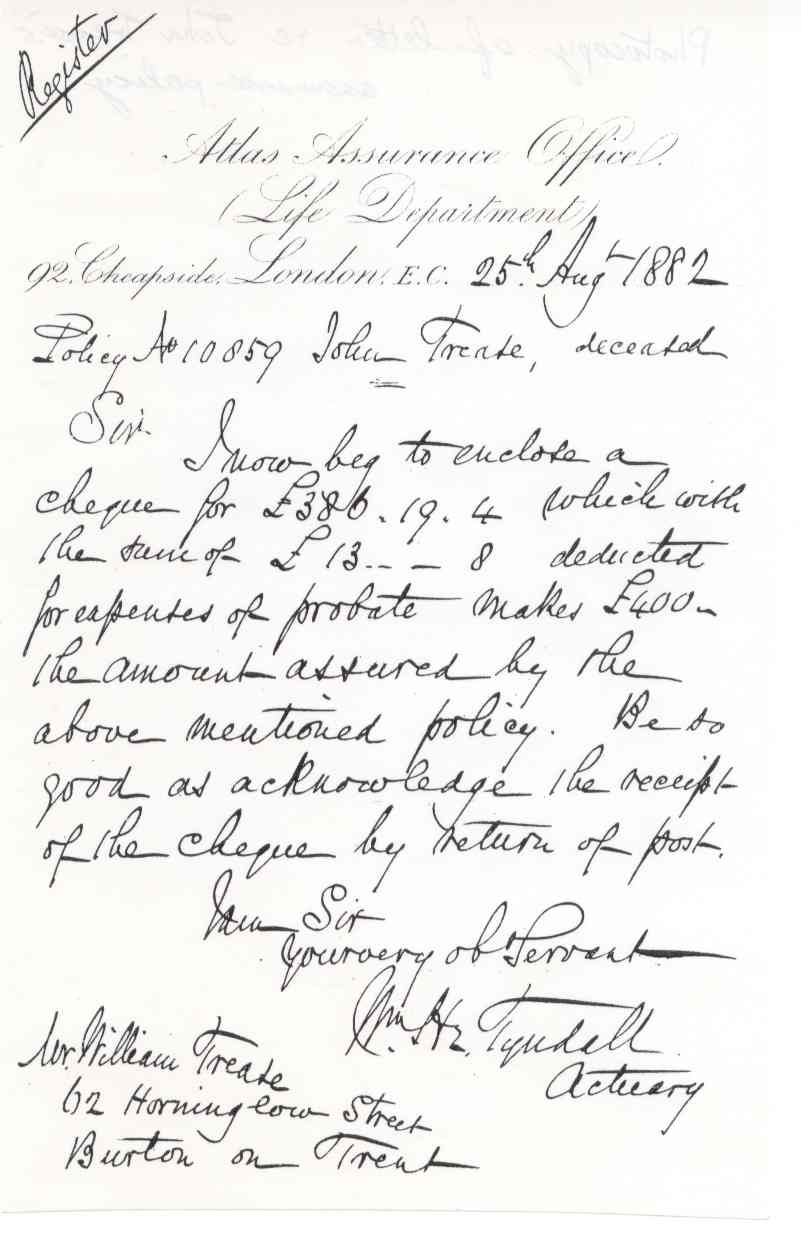 Register
Atlas Assurance Office.
(Life Department)
92, Cheapside, London, E.C. 25th Augt 1882
Policy No 10859 John Trease, deceased
Sir.
I now beg to enclose a
cheque for £386. 19. 4 which with
the sum of £13-- - 8 deducted
for expenses of probate makes £400-
the amount assured by the
above mentioned policy. Be so
good as acknowledge the receipt
of the cheque by return of post.
I am Sir
your very obt Servant
Wm. Hy. Tyndall
Actuary
Mr. William Trease
62 Horninglow Street
Burton on Trent
Photocopy of letter re John Trease's
assurance policy